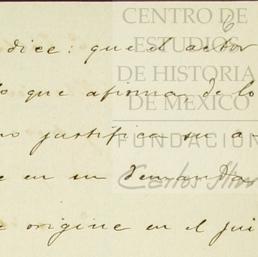 CENTRO DE
ESTUDIOS
DE HISTORIA
DE MÉXICO
FUNDACIÓN
Carlos Slim
6
dice: que el actor
que afirma, de lo
no justifica su a-
en su demanda
origine en el jui